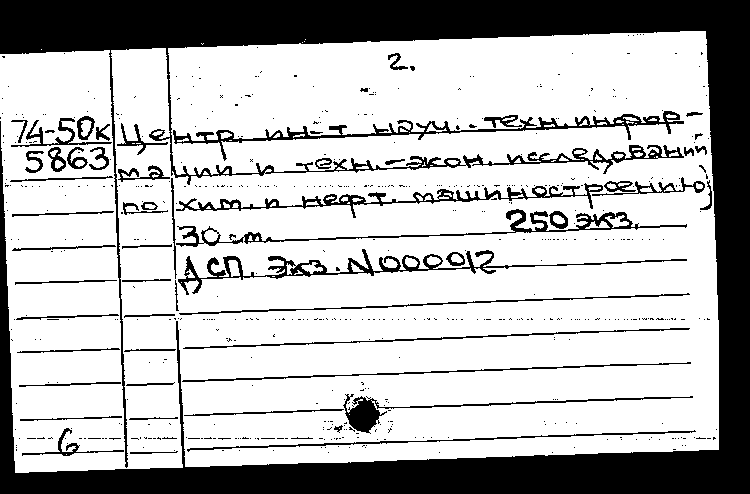 2.
74-50к Центр. ин-т науч.. техн. инфор-
5863 мации и техн.-экон. исследований
по хим. и нефт. машиностроению)
30 см. 250 экз.
ДСП. Экз. N000012.
6